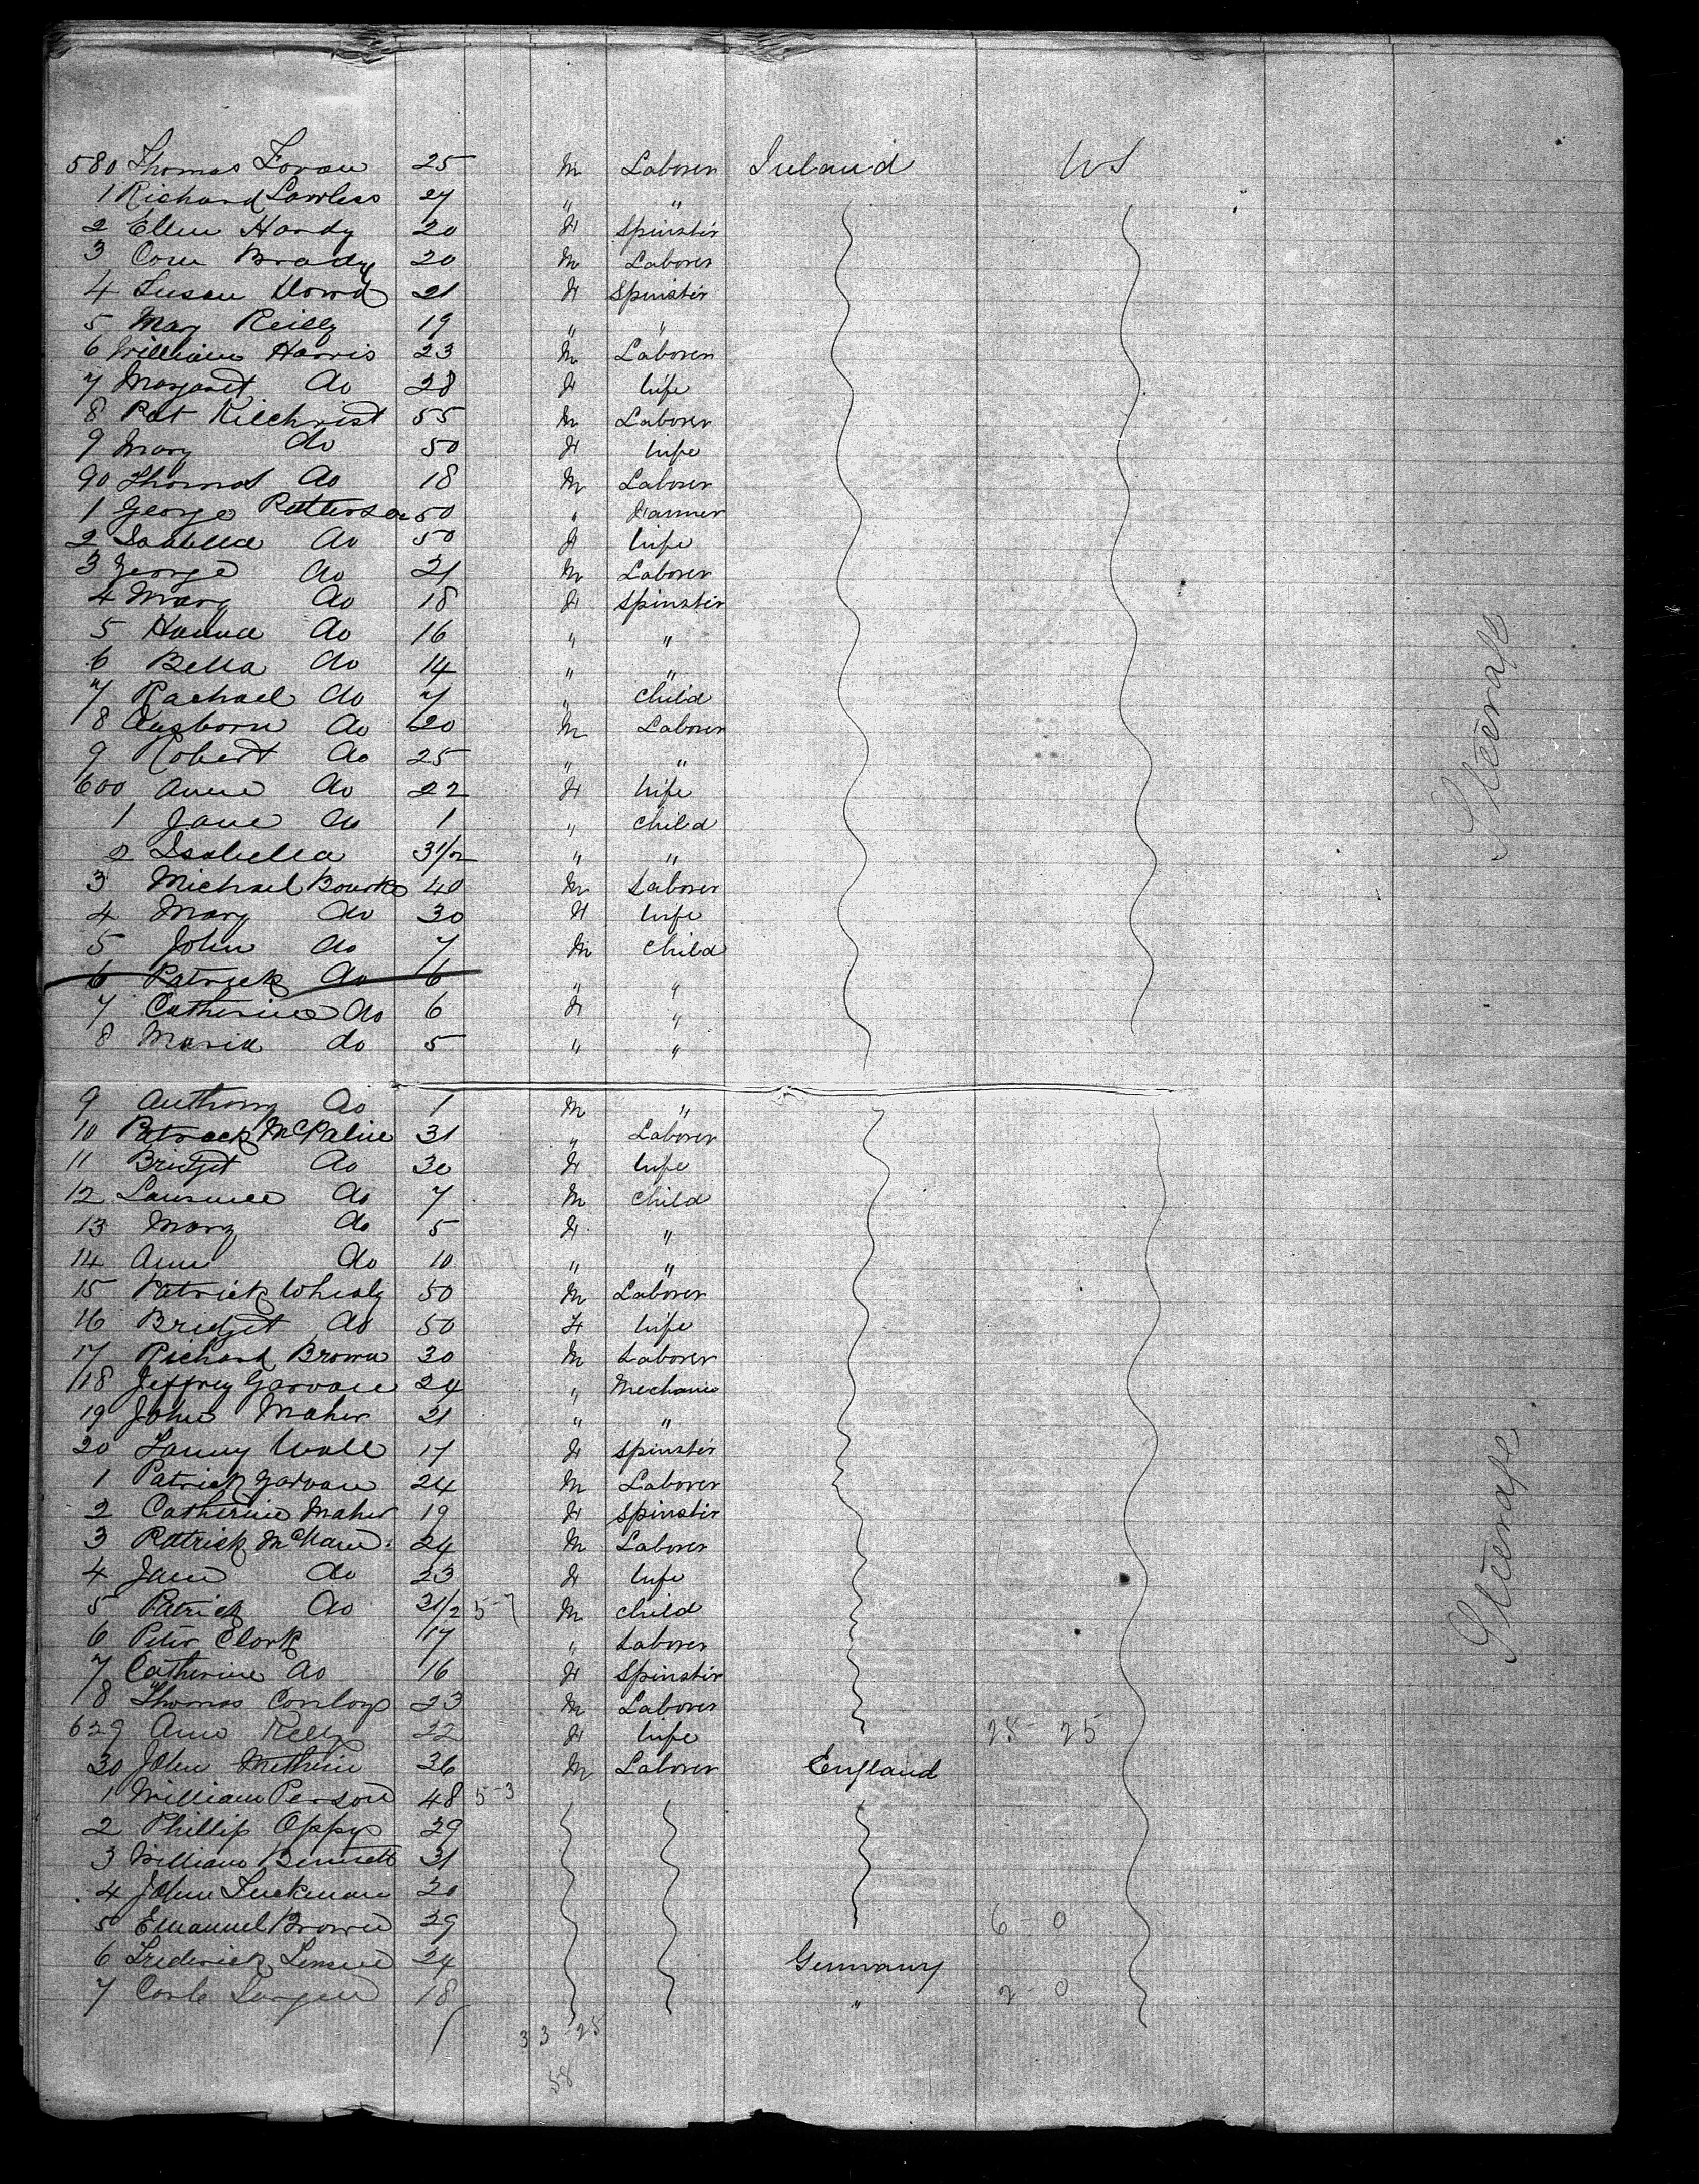 580 Thomas Foran 25 M Laborer Ireland US
1 Richard Lawless 27 " "
2 Ellen Hardy 20 F Spinster
3 Con Brady 20 M Laborer
4 Susan Dowd 21 F Spinster
5 Mary Reilly 19 " "
6 William Harris 23 M Laborer
7 Margaret do 28 F Wife
8 Pat Kilchrist 55 M Laborer
9 Mary do 50 F Wife
90 Thomas do 18 M Laborer
1 George Patterson 50 " Farmer
2 Isabella do 50 F Wife
3 George do 21 M Laborer
4 Mary do 18 F Spinster
5 Hanna do 16 " "
6 Bella do 14 " "
7 Rachael do 7 " Child
8 do 20 M Laborer
9 Robert do 25 " "
600 Anne do 22 F Wife
1 Jane do 1 " Child
2 Isabella 31/2 " "
3 Michael Bourke 40 M Laborer
4 Mary do 30 F Wife
5 John do 7 M Child
6 Patrick do 6 " "
7 Catherine do 6 F "
8 Maria do 5 " "
9 Anthony do 1 M "
10 Patrick McPaline 31 " Laborer
11 Bridget do 30 F Wife
12 Laurence do 7 M Child
13 Mary do 5 F "
14 Ann do 10 " "
15 Patrick Whealy 50 M Laborer
16 Bridget do 50 F Wife
17 Richard Brown 30 M Laborer
18 Jeffrey Garvan 24 " Mechanic
19 John Maher 21 " "
20 Fanny Wall 17 F Spinster
1 Patrick Garvan 24 M Laborer
2 Catherine Maher 19 F Spinster
3 Patrick 24 M Laborer
4 Jane do 23 F Wife
5 Patrick do 31/2 5-7 M Child
6 Peter Clark 17 " Laborer
7 Catherine do 16 F Spinster
8 Thomas Conboy 23 M Laborer
629 Ann Kelly 22 F Wife 28 25
30 John Methvin 36 M Laborer England
1 William Person 48 5-3
2 Phillip Oppy 29
3 William Bennett 31
4 John Luckman 20
5 Emanuel Brown 29 6 0
6 Frederick 24 Germany
7 18 " 2 0
33-25
58
Steerage
Steerage